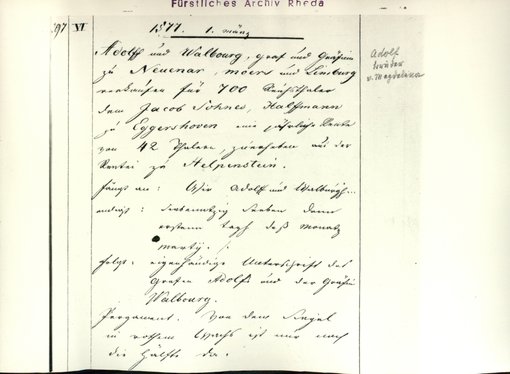 Fürstliches Archiv Rheda
397 VI 1577. 1. März
Adolff und Walbourg, graf und Gräfin
zu Neuenar, moers und Limburg
verkaufen für 700 Reichsthaler
dem Jacob Sohnes, Halffmann
zu Eggershoven eine jährliche Rente
von 42 Thalern, zu erheben aus der
Rentei zu Helpenstein.
fängt an: Wir Adolf und Walburgh...
endigt: siebenntzig sieben denn
ersten tagh deß monatz
martÿ. /.
folgt: eigenhändige Unterschrift des
Grafen Adolfs und der Gräfin
Walbourg.
Pergament. Von dem Siegel
in rothem Wachs ist nur noch
die Hälfte da.
Adolf
bruder
v. Magdalena